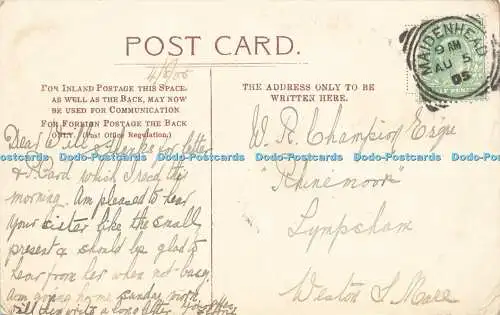 POST CARD.
4/8/05
FOR INLAND POSTAGE THIS SPACE,
AS WELL AS THE BACK, MAY NOW
BE USED FOR COMMUNICATION
FOR FOREIGN POSTAGE THE BACK
ONLY. (Post Office Regulation.)
THE ADDRESS ONLY TO BE
WRITTEN HERE.
MAIDENHEAD
9 AM
AU 5
05
Dear Will, Thanks for letter
& Card which I recd this
morning. Am pleased to hear
your sister like the small
present & should be glad to
hear from her when not busy.
Am going home Sunday morn
will then write a long letter.
W. R. Champion Esqre
"Rhinemoor"
Lympsham
Weston S Mare
Dodo-Postcards Dodo-Postcards Dodo-Postcards Dodo-Postcards Dodo-Postcards